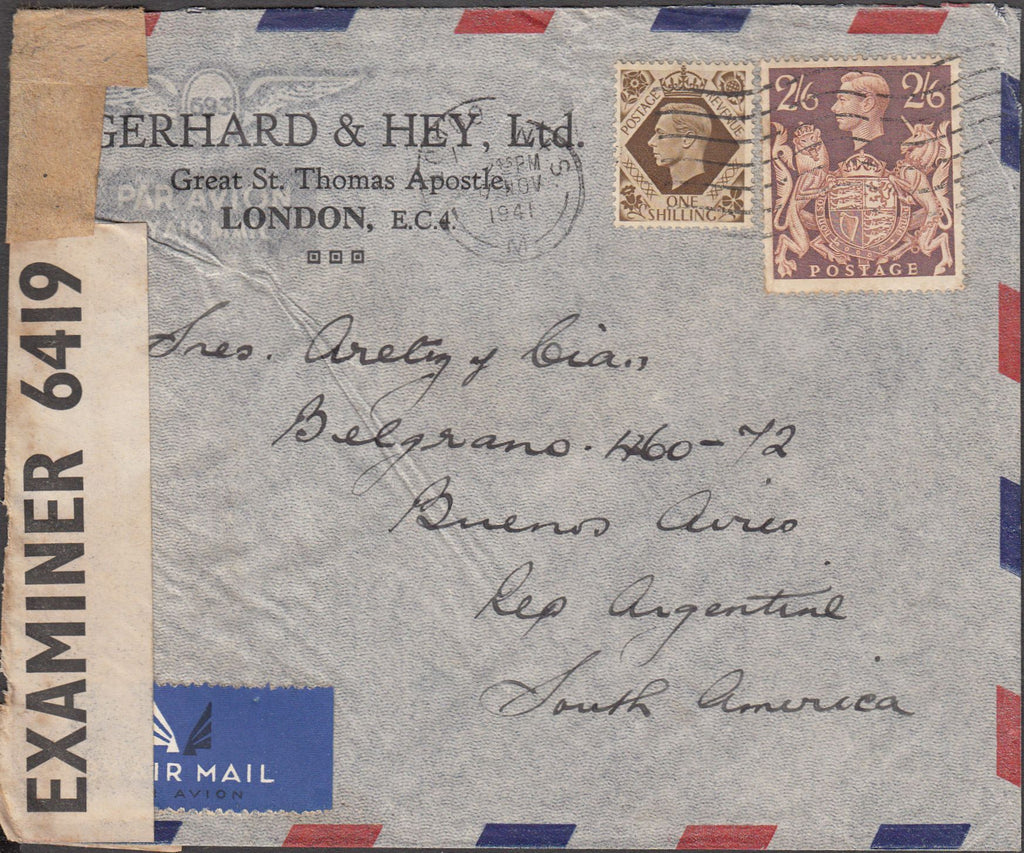 693
GERHARD & HEY, Ltd.
Great St. Thomas Apostle,
LONDON, E.C.4.
PAR AVION
BY AIR MAIL
PM
NOV
1941
POSTAGE REVENUE
ONE
SHILLING
2/6 2/6
POSTAGE
EXAMINER 6419
Sres. Aretz y Cia.,
Belgrano. 460-72
Buenos Aires
Rep Argentine
South America
IR MAIL
AVION